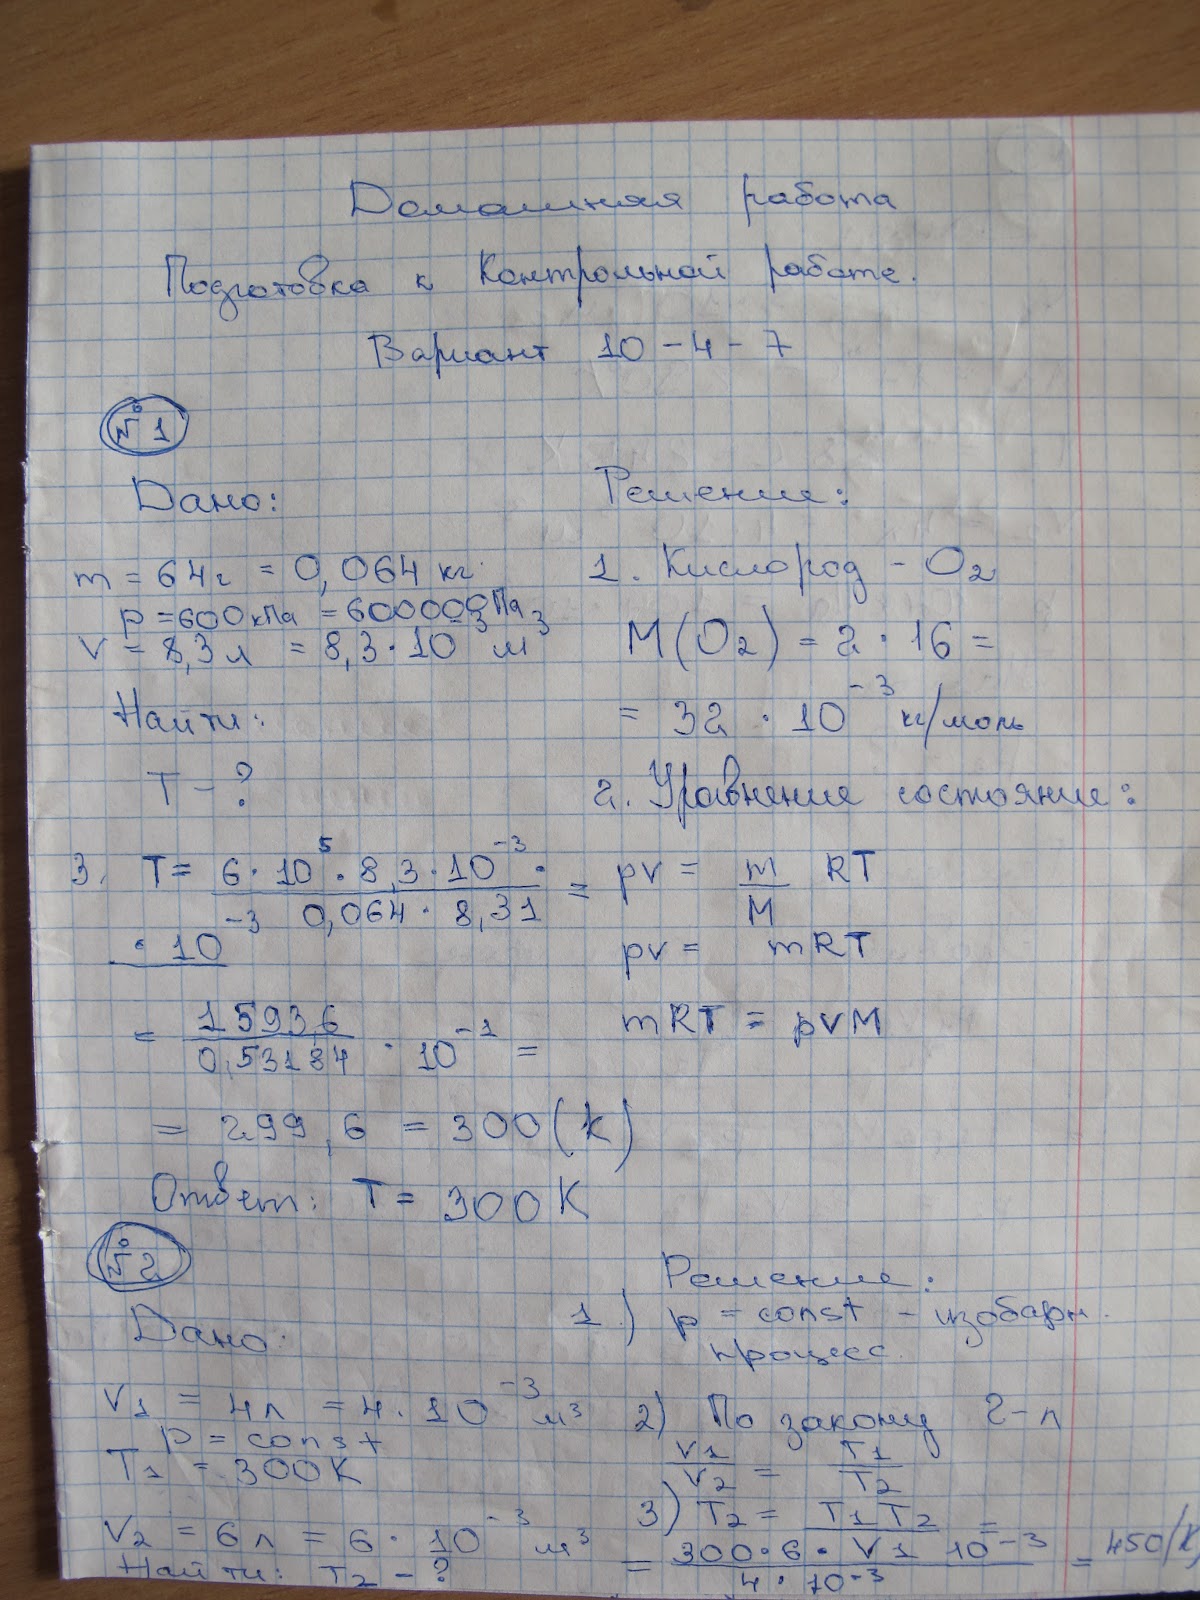 Домашняя работа
Подготовка к Контрольной работе.
Вариант 10-4-7
№1
Дано:
m = 64г = 0,064 кг
p = 600кПа = 600000Па
V = 8,3 л = 8,3·10⁻³ м³
Найти:
T - ?
Решение:
1. Кислород - O₂
M(O₂) = 2·16 =
= 32·10⁻³ кг/моль
2. Уравнение состояние:
pv = m/M RT
pv = mRT
mRT = pVM
3. T = 6·10⁵·8,3·10⁻³· / 0,064·8,31 =
·10⁻³
= 15936/0,53184 · 10⁻¹ =
= 299,6 = 300(k)
Ответ: T = 300K
№2
Дано:
V₁ = 4л = 4·10⁻³ м³
p = const
T₁ = 300K
V₂ = 6л = 6·10⁻³ м³
Найти: T₂ - ?
Решение:
1.) p = const - изобарн.
процесс.
2) По закону Г-Л
V₁/V₂ = T₁/T₂
3) T₂ = T₁T₂/V₁ =
= 300·6·10⁻³/4·10⁻³ = 450(K)